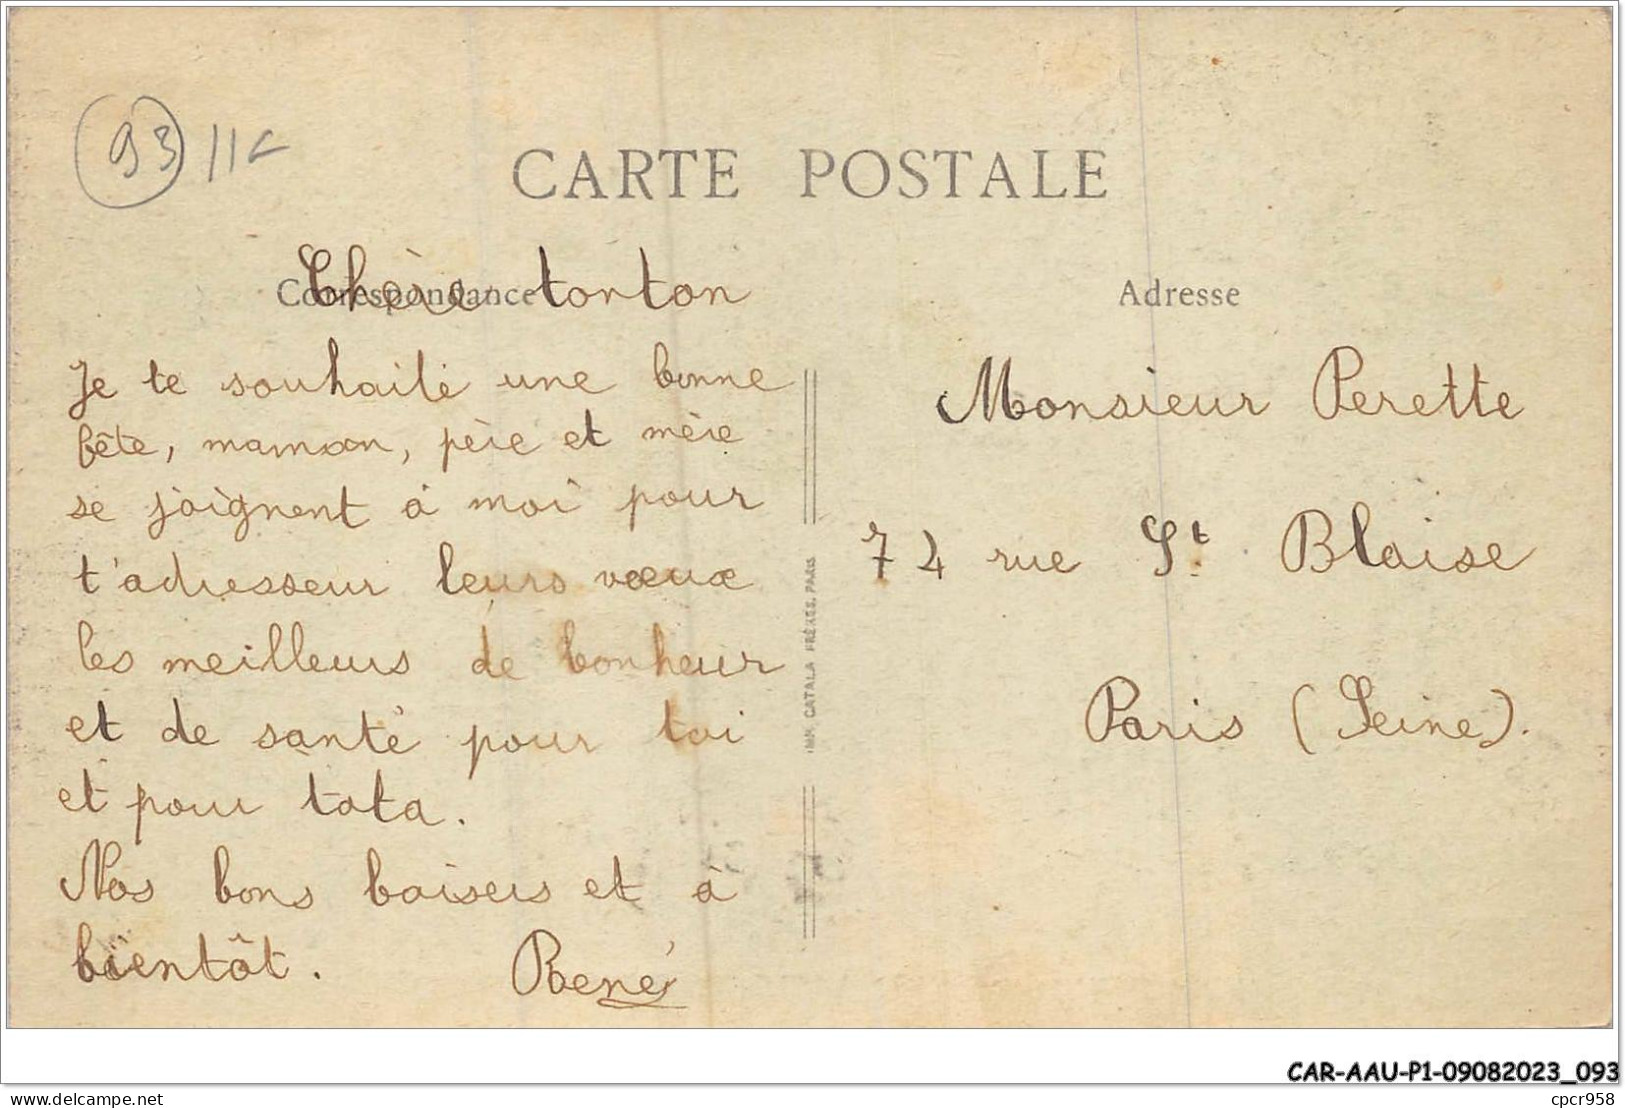 93 11c
CARTE POSTALE
Correspondance
Chère tonton
Je te souhaite une bonne
fête, maman, père et mère
se joignent à moi pour
t'adresseur leurs vœux
les meilleurs de bonheur
et de santé pour toi
et pour tata.
Nos bons baisers et à
bientôt. René
IMP. CATALA FRÈRES, PARIS
Adresse
Monsieur Perette
74 rue St Blaise
Paris (Seine).
CAR-AAU-P1-09082023_093
delcampe.net
cpcr958